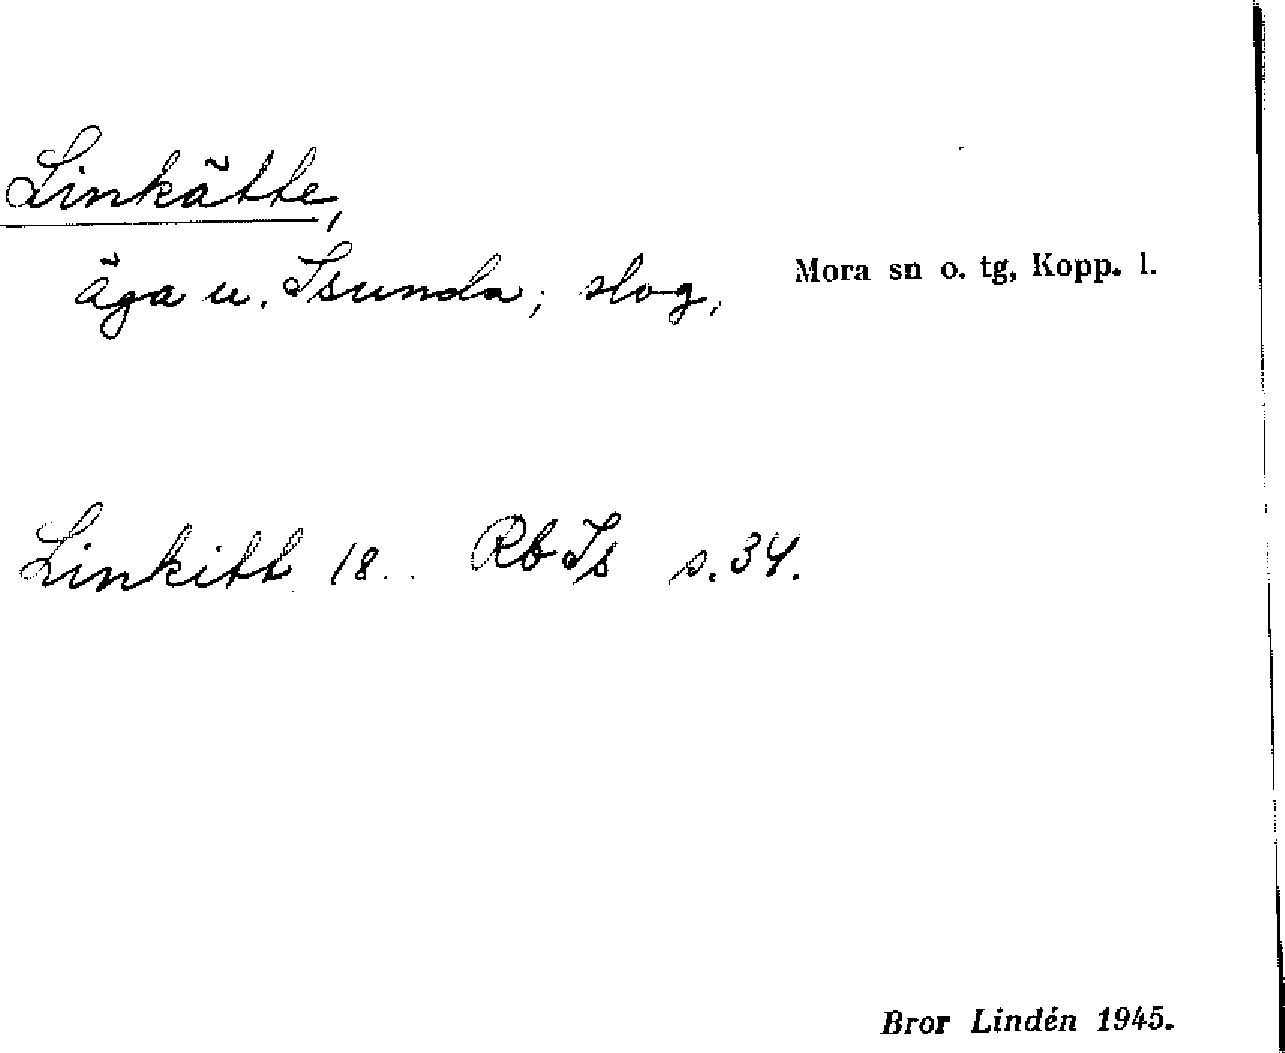 Linkätte,
äga u. Isunda; slog,
Mora sn o. tg, Kopp. l.
Linkitt 18.. Rb Is s. 34.
Bror Lindén 1945.